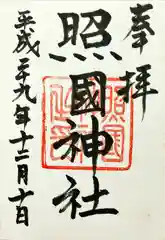 奉拝
照國神社
平成二十九年十二月十日